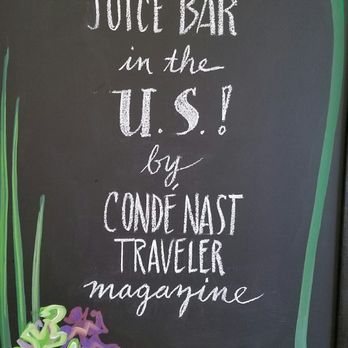 JUICE BAR
in the
U.S.!
by
CONDÉ NAST
TRAVELER
magazine